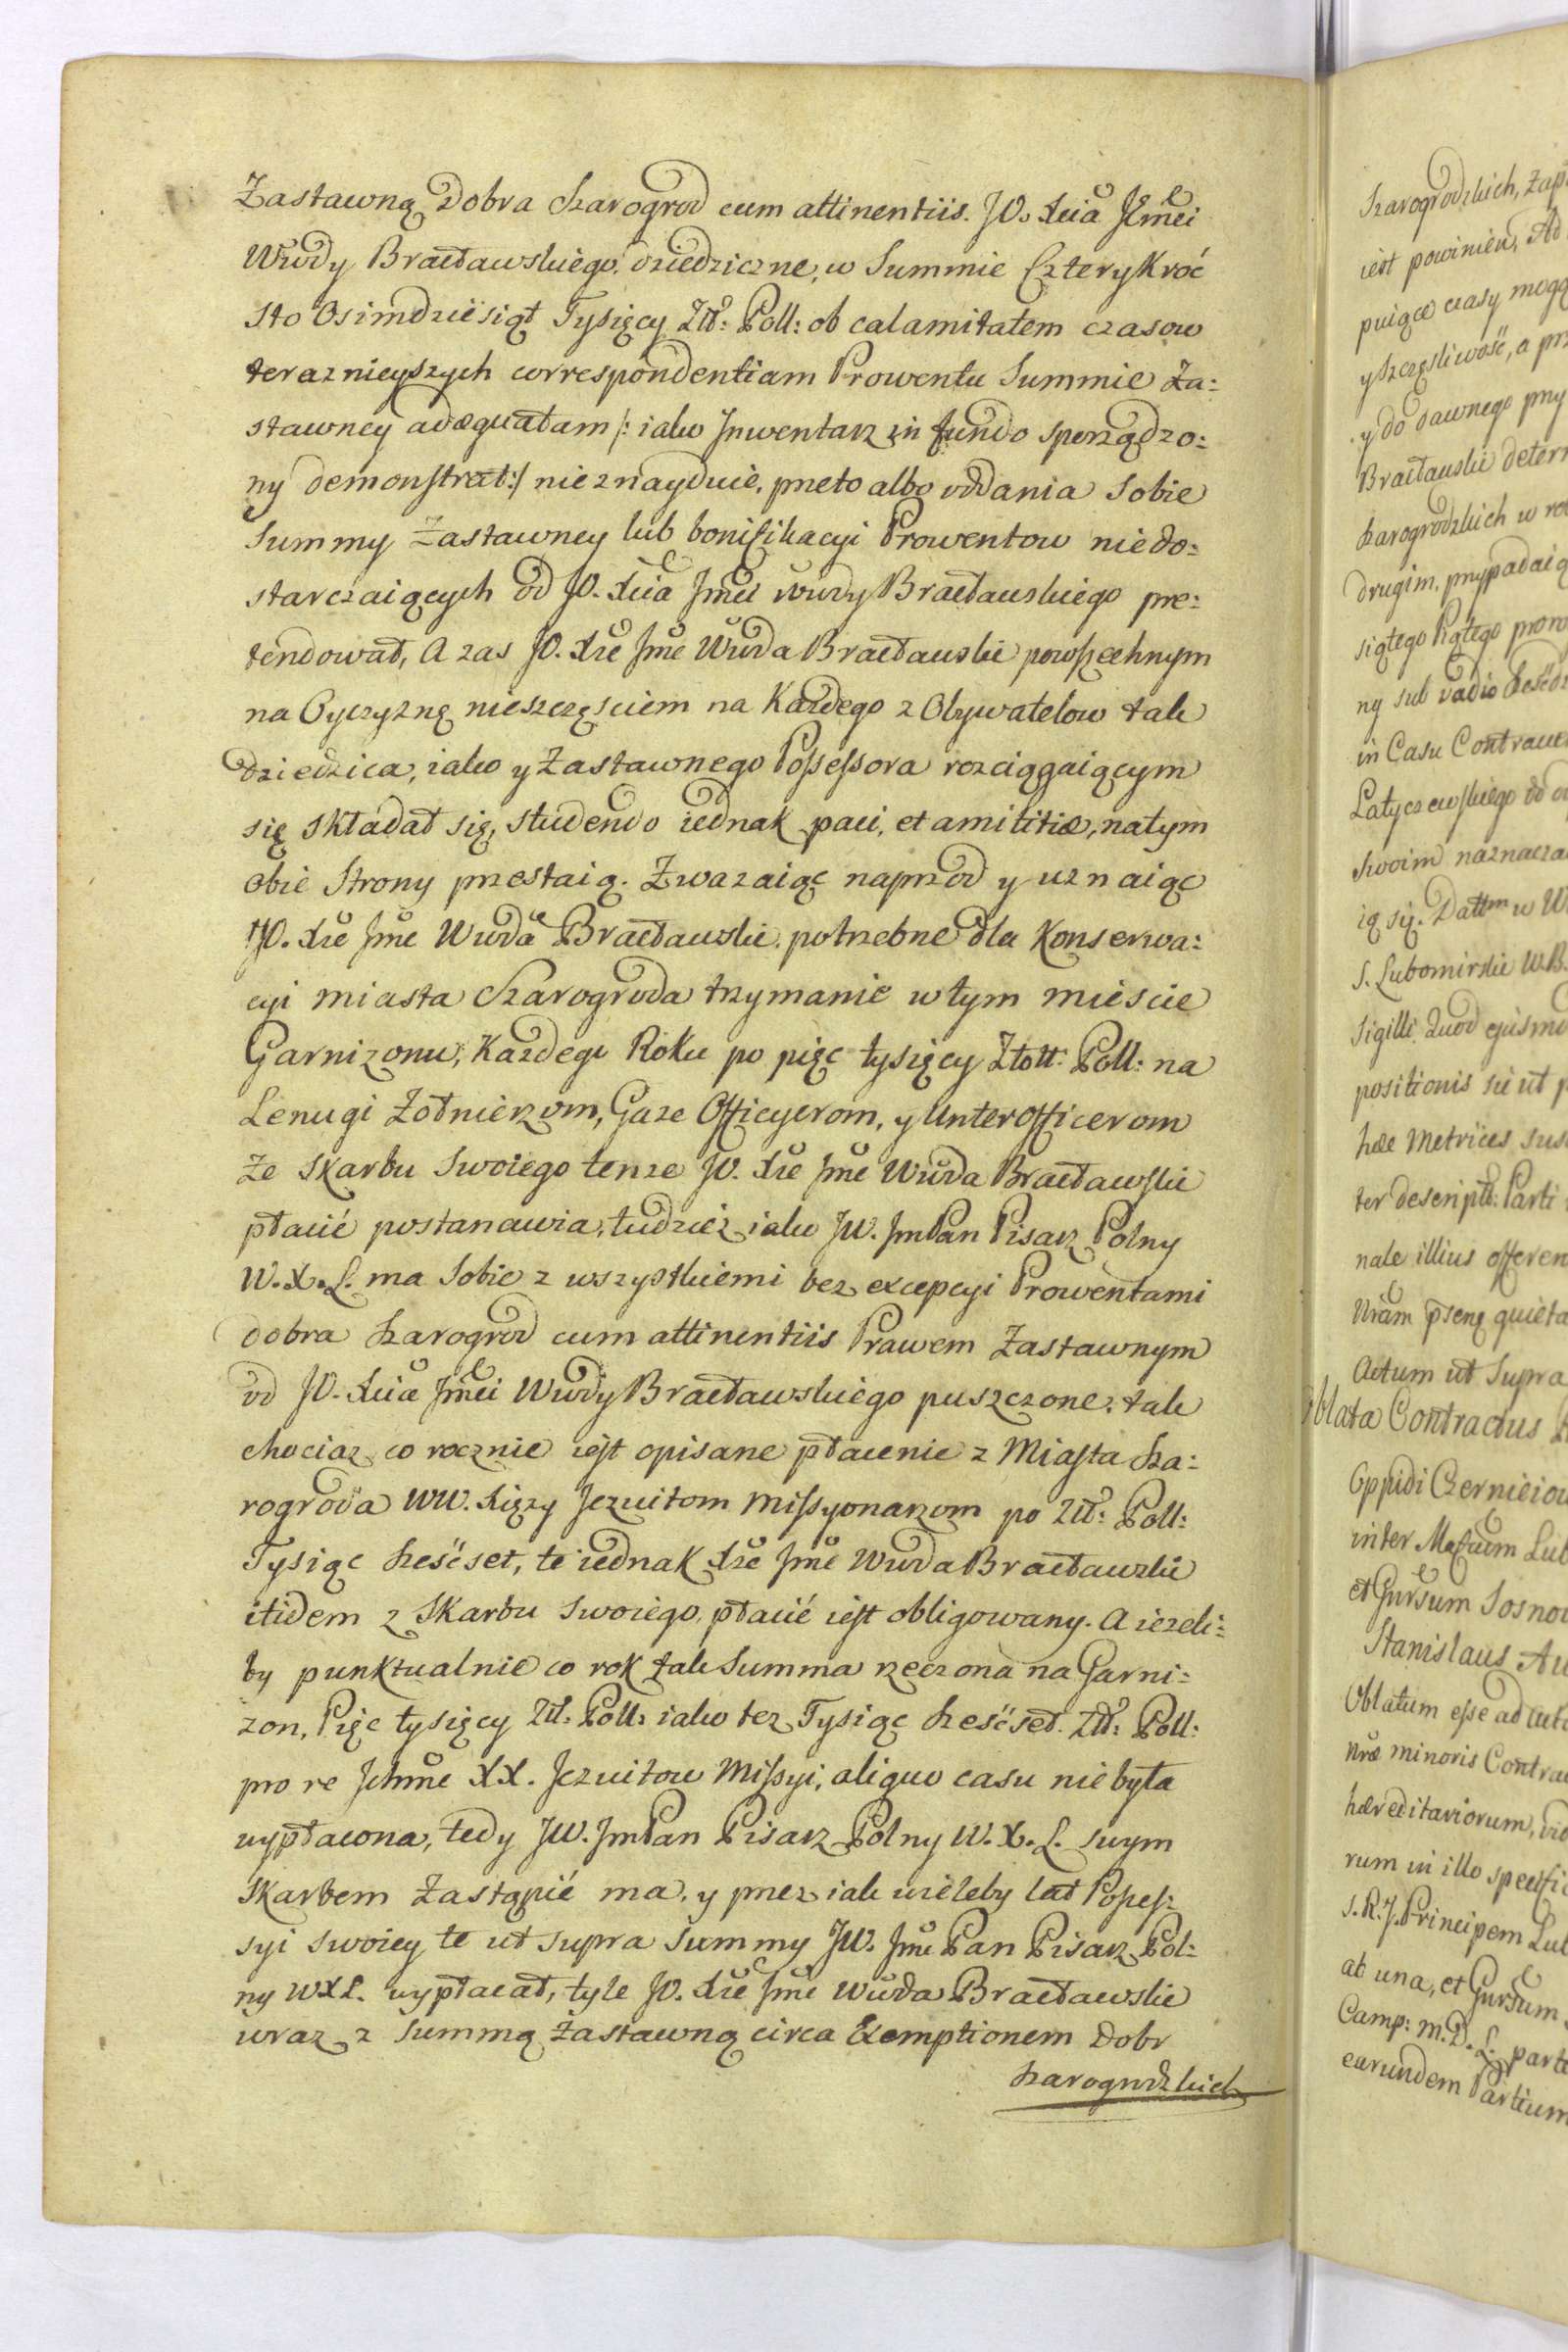 Zastawną Dobra Szarogrod cum attinentiis JO. Xcia Jmci
Wwdy Bracławskiego dziedziczne, w Summie Czterykroć
Sto Osimdziesiąt Tysięcy Złł: Poll: ob calamitatem czasow
teraznieyszych correspondentiam Prowentu Summie Za:
stawney adæquatam /: iako Jnwentarz in fundo sporządzo:
ny demonstrat :/ nie znayduie, przeto albo oddania sobie
Summy Zastawney lub bonifikacyi Prowentow niedo:
starczaiących od JO. Xcia Jmci Wwdy Bracławskiego pre:
tendował, A zas JO. Xże Jmć Wwda Bracławski powszechnym
na Oyczyznę nieszczęściem na Każdego z Obywatelow tak
dziedzica, iako y Zastawnego Possessora rozciągaiącym
się składał się, studendo iednak paci, et amicitiæ, na tym
obie Strony przestaią. Zwazaiąc naprzod y uznaiąc
JO. Xże Jmć Wwda Bracławski potrzebne dla Konserwa:
cyi miasta Szarogroda trzymanie w tym miescie
Garnizonu, Kazdego Roku po pięc tysięcy Złott: Poll: na
Lenugi Żołnierzom, Gaze Officyerom, y Unterofficerom
ze Skarbu Swoiego tenze JO. Xże Jmć Wwda Bracławski
płacić postanawia, tudziez iako JW. JmPan Pisarz Polny
W. X. L. ma Sobie z wszystkiemi bez excepcyi Prowentami
dobra Szarogrod cum attinentiis Prawem Zastawnym
od JO. Xcia Jmci Wwdy Bracławskiego puszczone, tak
chociaz co rocznie iest opisane płacenie z Miasta Sza:
rogroda WW. Xięzy Jezuitom Missyonarzom po Złł: Poll:
Tysiąc szesćset, te iednak Xże Jmć Wwda Bracławski
itidem z Skarbu Swoiego płacić iest obligowany. A iezeli:
by punktualnie co rok tak Summa rzeczona na Garni:
zon, Pięc tysięcy Złł: Poll: iako tez Tysiąc szesćset Złł: Poll:
pro re Jchmć XX. Jezuitow Missyi, aliquo casu nie była
wypłacona, tedy JW. JmPan Pisarz Polny W. X. L. swym
Skarbem Zastąpić ma, y przez iak wieleby lat Posses:
syi swoiey te ut supra Summy JW. Jmć Pan Pisarz Pol:
ny WXL. wypłacał, tyle JO. Xże Jmć Wwda Bracławski
wraz z Summą Zastawną circa Exemptionem Dobr
Szarogrodzkich
Szarogrodzkich, zap
iest powinien, Ad
puiące czasy mogą
y szczęsliwość, a prz
y do dawnego przy
Bracławski deter
Szarogrodzkich w ro
drugim, przypadaią
siątego Piątego
ny sub vadio
in Casu Contrave
Latyczewskiego
Swoim naznacza
ią się. Dattm w W
S. Lubomirski W.B.
Sigilli Quod ejusmo
positionis sicut p
hæ Metrices sus
ter descript: Parti
nale illius offeren
Nram psenq quieta
Actum ut Supra
Oblata Contractus
Oppidi Czerniciow
inter Mgficum Lub
et Gnrsum Sosnow
Stanislaus Au
Oblatum esse ad acta
Nræ minoris Contrac
hæreditariorum,
rum in illo specifi
S. R. J. Principem Lub
ab una, et Gnrsum
Camp: M. D. L. parte
earundem Partium